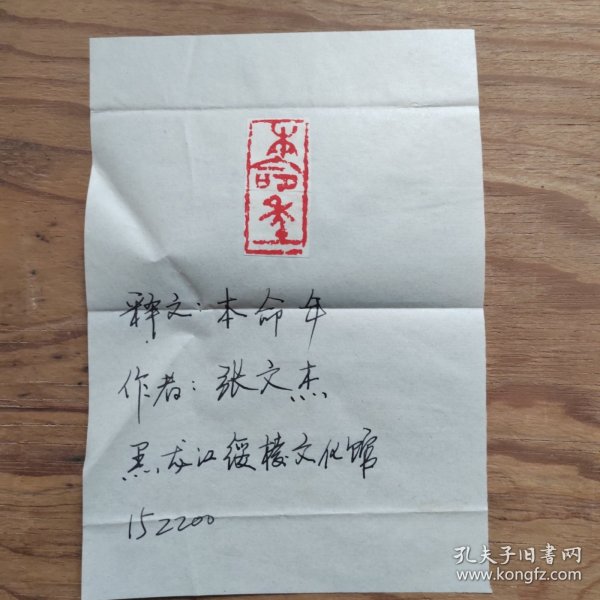 本命年
释文：本命年
作者：张文杰
黑龙江绥棱文化馆
152200
孔夫子旧书网
www.kongfz.com